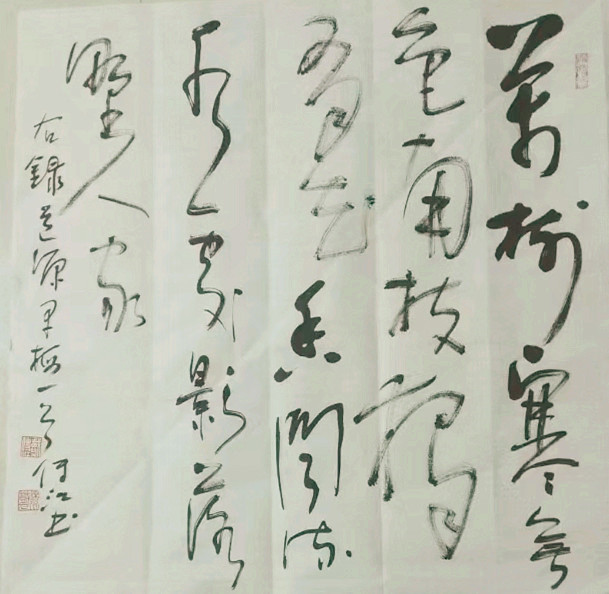 萬樹寒無
色南枝獨
有花香聞流
水處影落
野人家
右錄道源早梅一首 江书